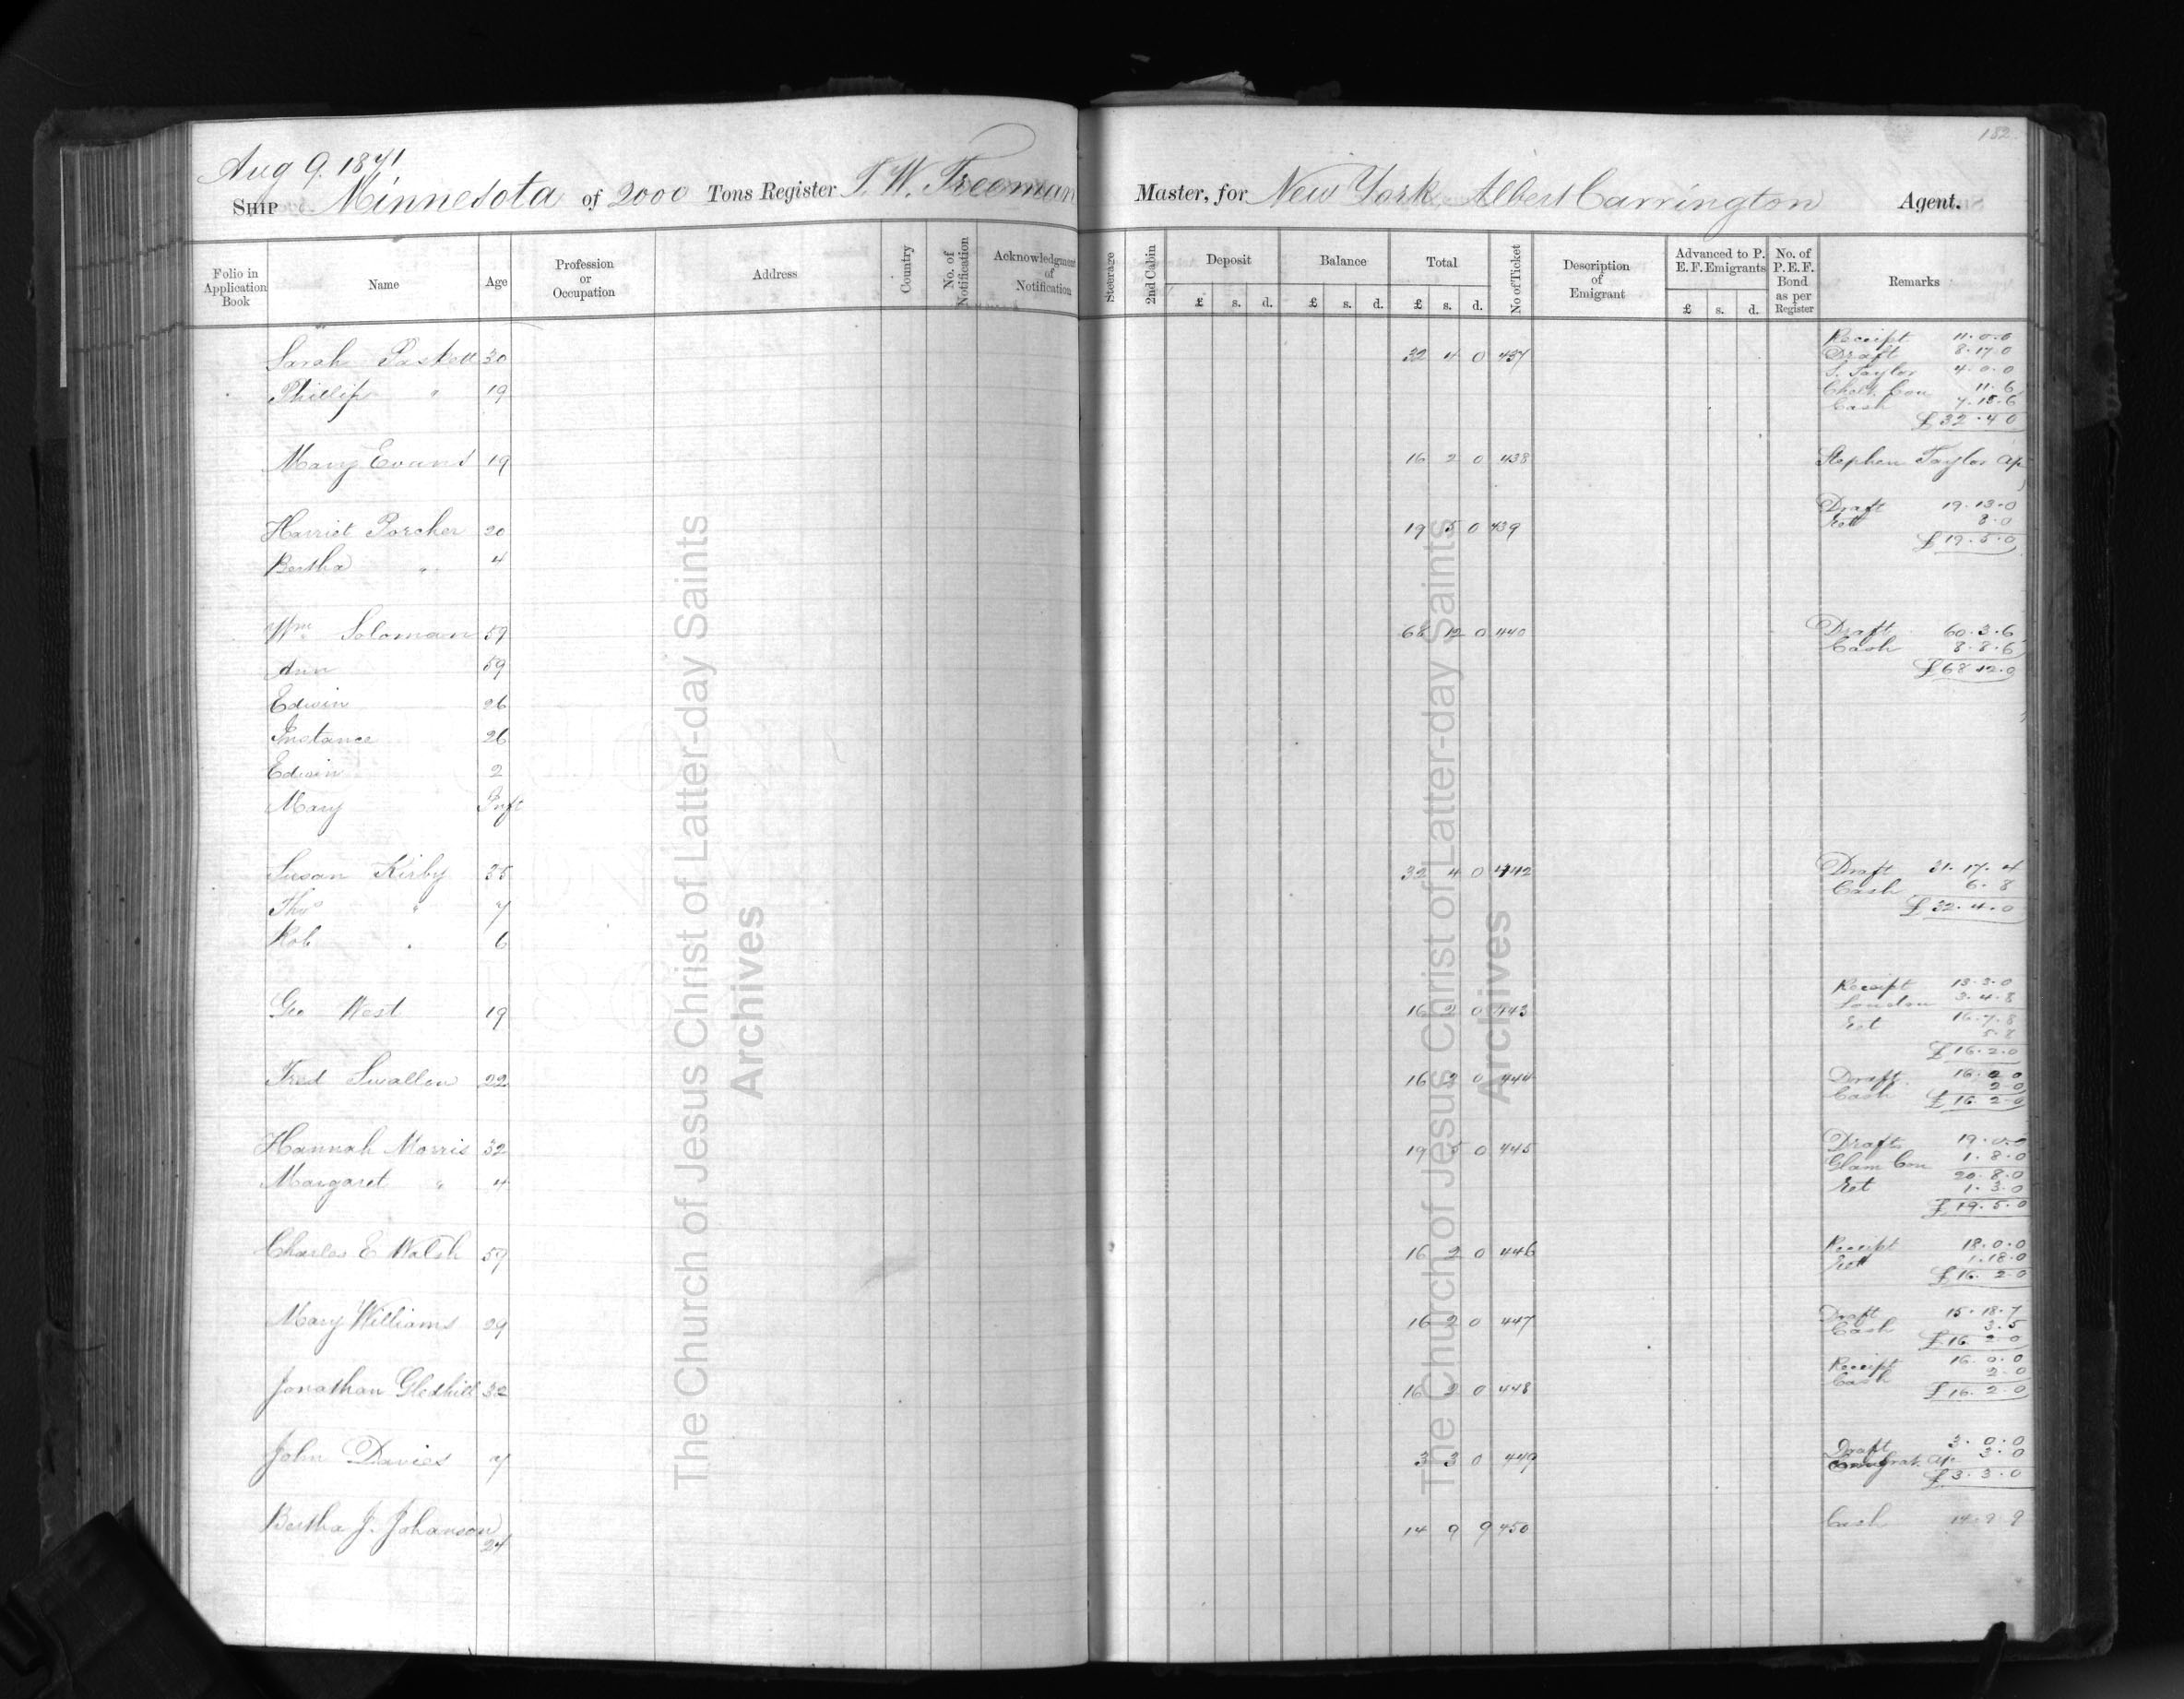 182
Aug 9. 1871
SHIP Minnesota of 2000 Tons Register T. W. Freeman Master, for New York Albert Carrington Agent.
Folio in Application Book Name Age Profession or Occupation Address Country No. of Notification Acknowledgment of Notification Steerage 2nd Cabin Deposit £ s. d. Balance £ s. d. Total £ s. d. No of Ticket Description of Emigrant Advanced to P. E. F. Emigrants £ s. d. No. of P. E. F. Bond as per Register Remarks
Receipt 11.0.0
Sarah Paskett 30 32 4 0 437 Draft 8.17.0
S. Taylor 4.0.0
Phillip " 19 Chelt. Con 11.6
Cash 7.15.6
£32.4.0
Mary Evans 19 16 2 0 438 Stephen Taylor ap
Draft 19.13.0
Harriet Porcher 20 19 5 0 439 Ret 8.0
£19.5.0
Bertha " 4
Wm Soloman 59 68 12 0 440 Draft 60.3.6
Cash 8.8.6
Ann 59 £68.12.0
Edwin 26
26
Edwin 2
Mary Inft
Susan Kirby 35 32 4 0 442 Draft 31.17.4
Cash 6.8
Thos " 7 £32.4.0
Rob " 6
Receipt 13.3.0
London 3.4.8
Geo West 19 16 2 0 443 16.7.8
Ret 5.8
£16.2.0
Fred Swallow 22 16 2 0 444 Draft 16.0.0
Cash 2.0
£16.2.0
Hannah Morris 32 19 5 0 445 Draft 19.0.0
Glam Con 1.8.0
20.8.0
Margaret " 4 Ret 1.3.0
£19.5.0
Charles E Walsh 59 16 2 0 446 Receipt 18.0.0
Ret 1.18.0
£16.2.0
Mary Williams 29 16 2 0 447 Draft 15.18.7
Cash 3.5
£16.2.0
Jonathan Gledhill 32 16 2 0 448 Receipt 16.0.0
Cash 2.0
£16.2.0
John Davies 7 3 3 0 449 Draft 3.0.0
Emigrat. ap. 3.0
£3.3.0
Bertha J. Johanson 24 14 9 9 450 Cash 14.9.9
The Church of Jesus Christ of Latter-day Saints
Archives
The Church of Jesus Christ of Latter-day Saints
Archives